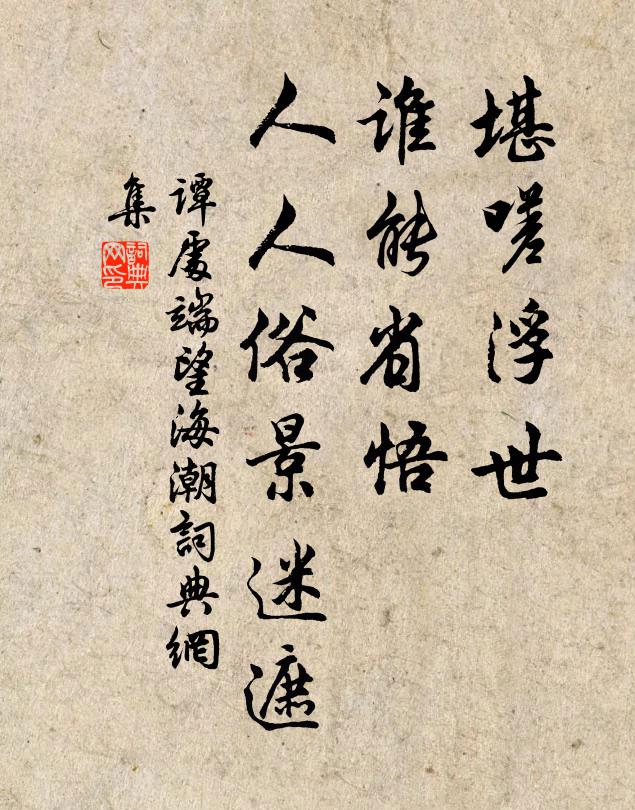 堪嗟浮世
誰能省悟
人人俗景迷遮
譚處端望海潮詞典網
集
詞典網印